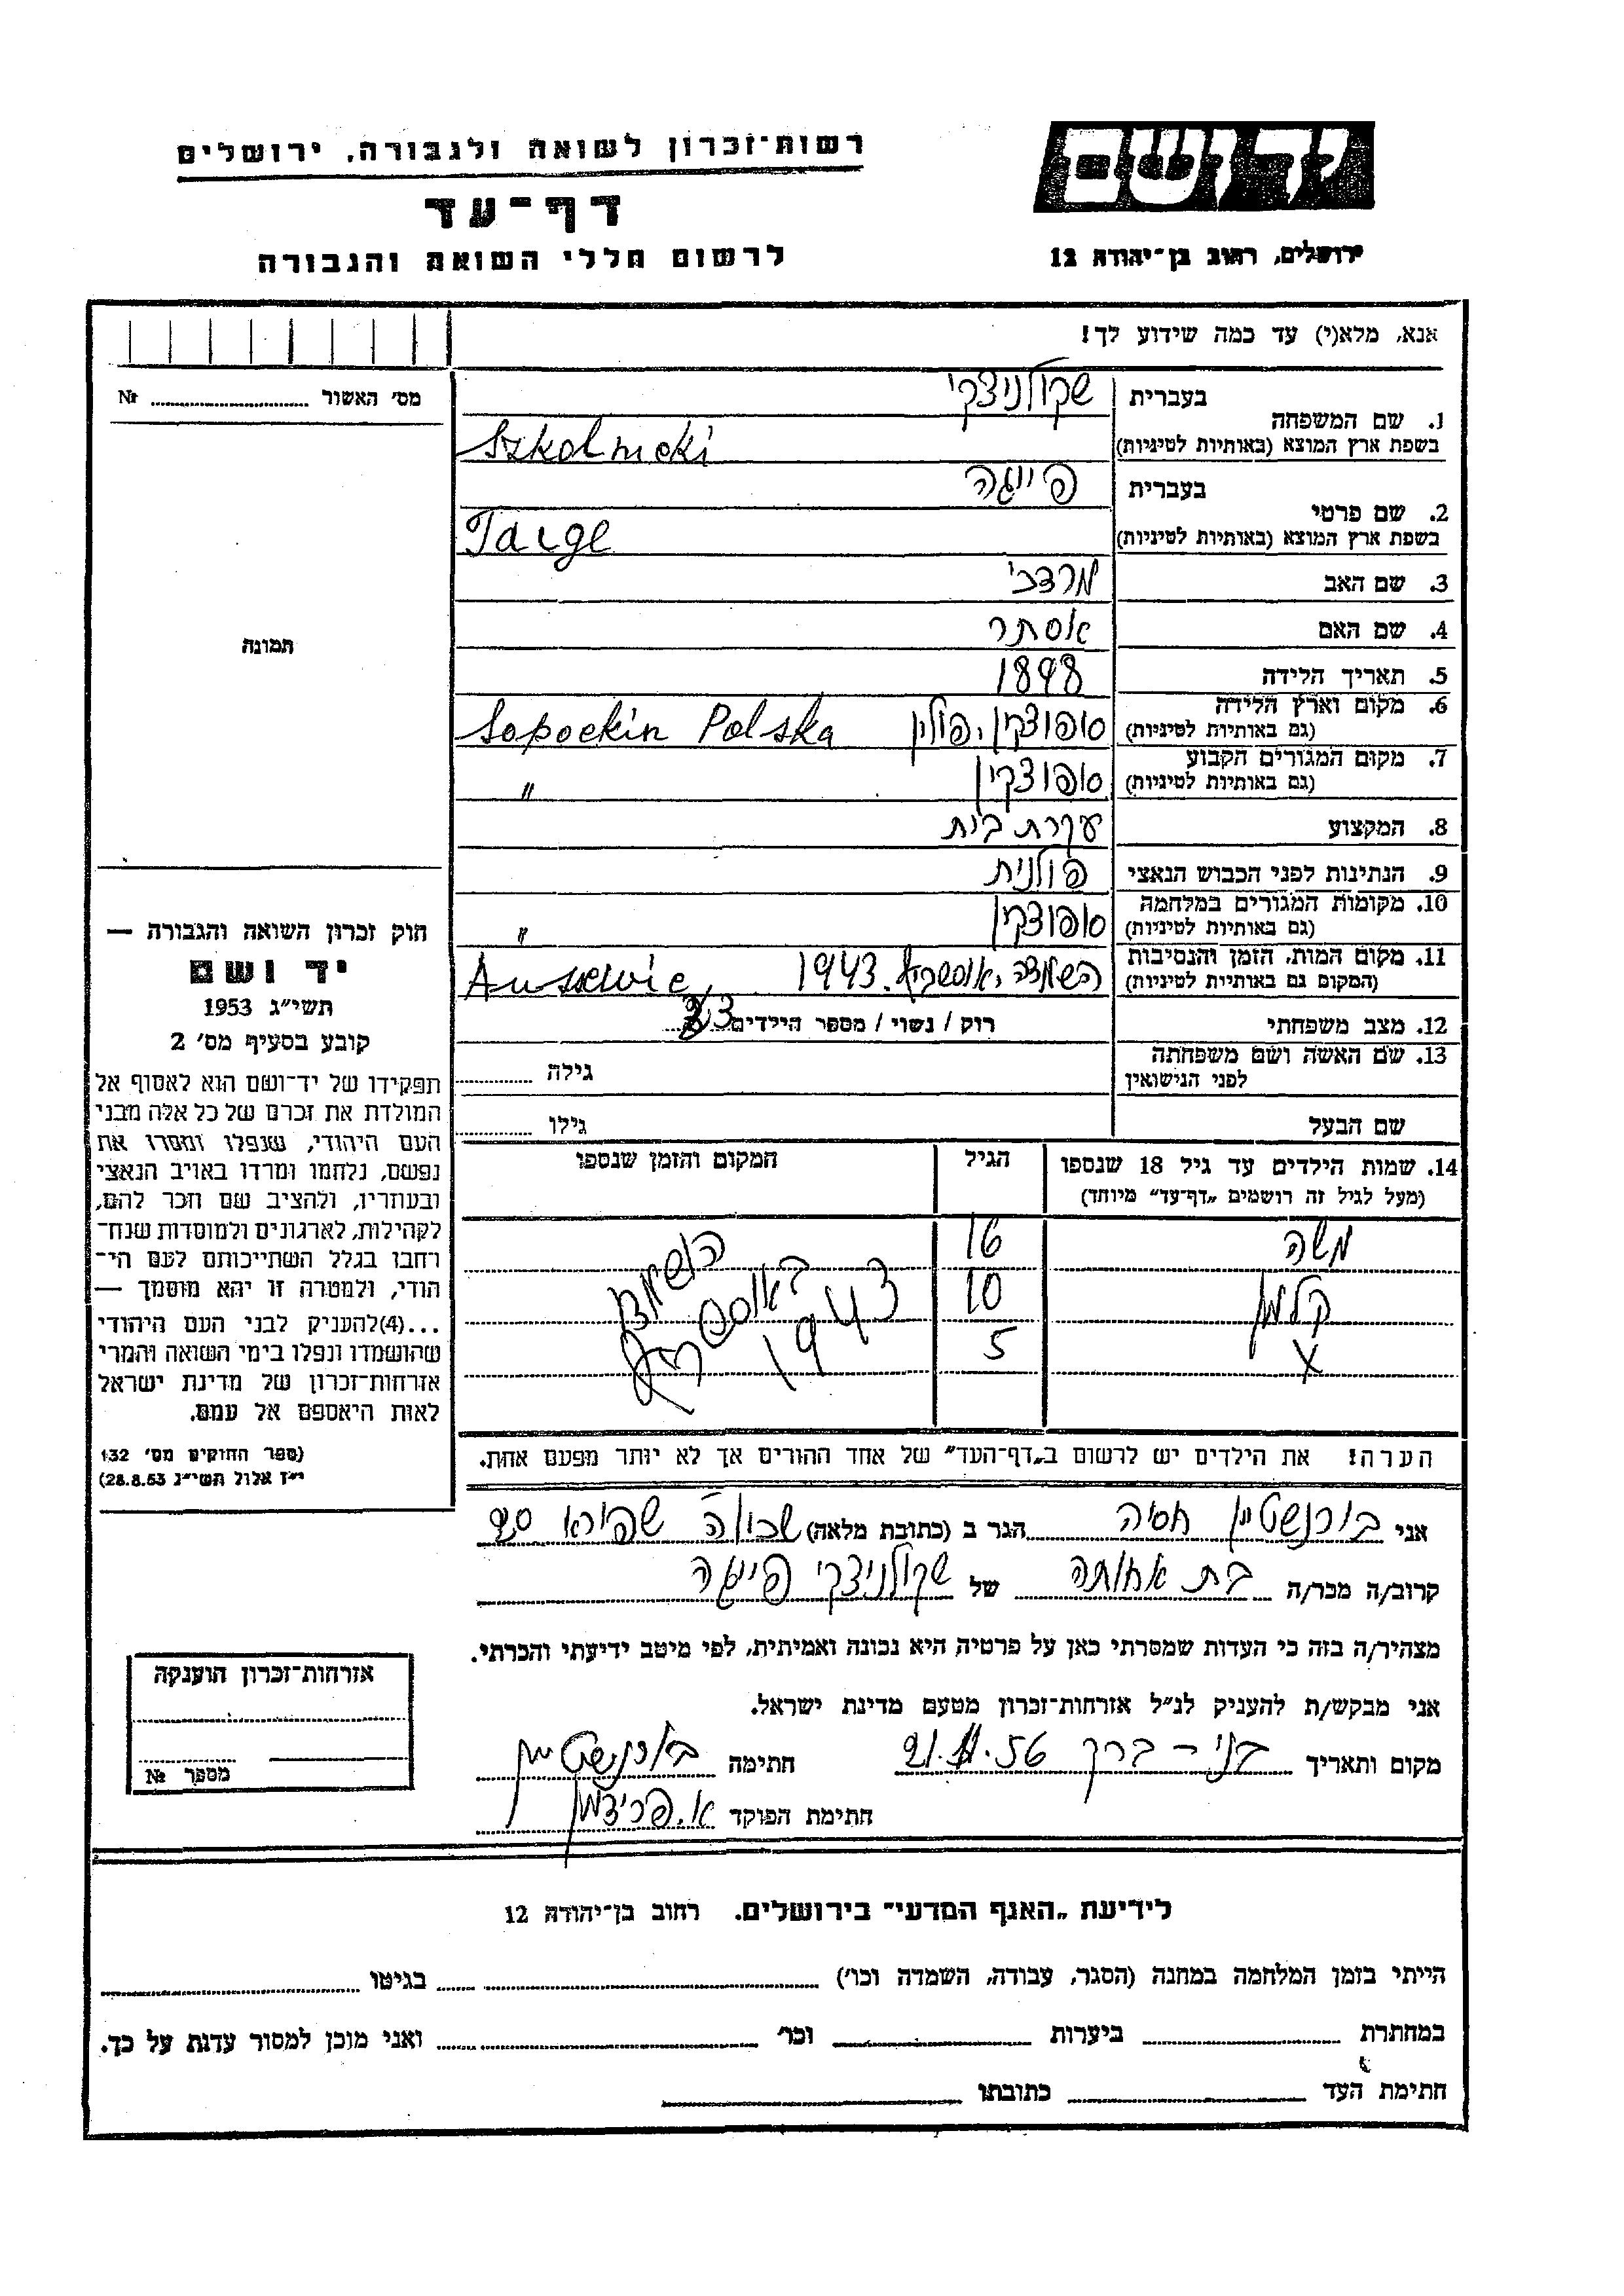 רשות-זכרון לשואה ולגבורה, ירושלים
דף-עד
לרשום חללי השואה והגבורה
יד ושם
ירושלים, רחוב בן-יהודה 12
אנא, מלא(י) עד כמה שידוע לך!
מס' האשור Nr
תמונה
1. שם המשפחה
בעברית שקולניצקי
בשפת ארץ המוצא (באותיות לטיניות) Szkolnicki
2. שם פרטי
בעברית פייגה
בשפת ארץ המוצא (באותיות לטיניות) Faige
3. שם האב מרדכי
4. שם האם אסתר
5. תאריך הלידה 1898
6. מקום וארץ הלידה (גם באותיות לטיניות) סופוצקין, פולין Sopockin Polska
7. מקום המגורים הקבוע (גם באותיות לטיניות) סופוצקין "
8. המקצוע עקרת בית
9. הנתינות לפני הכבוש הנאצי פולנית
10. מקומות המגורים במלחמה (גם באותיות לטיניות) סופוצקין "
11. מקום המות, הזמן והנסיבות (המקום גם באותיות לטיניות) 1943
12. מצב משפחתי רוק / נשוי / מספר הילדים 3
13. שם האשה ושם משפחתה לפני הנישואין גילה
שם הבעל גילו
14. שמות הילדים עד גיל 18 שנספו הגיל המקום והזמן שנספו
(מעל לגיל זה רושמים "דף-עד" מיוחד)
משה 16
קלמן 10
X 5
1943
הערה: את הילדים יש לרשום ב"דף-העד" של אחד ההורים אך לא יותר מפעם אחת.
חוק זכרון השואה והגבורה —
יד ושם
תשי"ג 1953
קובע בסעיף מס' 2
תפקידו של יד-ושם הוא לאסוף אל
המולדת את זכרם של כל אלה מבני
העם היהודי, שנפלו ומסרו את
נפשם, נלחמו ומרדו באויב הנאצי
ובעוזריו, ולהציב שם וזכר להם,
לקהילות, לארגונים ולמוסדות שנח-
רבו בגלל השתייכותם לעם הי-
הודי, ולמטרה זו יהא מוסמך —
...(4)להעניק לבני העם היהודי
שהושמדו ונפלו בימי השואה והמרי
אזרחות-זכרון של מדינת ישראל
לאות היאספם אל עמם.
(ספר החוקים מס' 132
י"ז אלול תשי"ג 28.8.53)
אני בורנשטיין חסיה הגר ב (כתובת מלאה) שפירא 20
קרוב/ה מכר/ה בת אחותה של שקולניצקי פייגה
מצהיר/ה בזה כי העדות שמסרתי כאן על פרטיה היא נכונה ואמיתית, לפי מיטב ידיעתי והכרתי.
אני מבקש/ת להעניק לנ"ל אזרחות-זכרון מטעם מדינת ישראל.
מקום ותאריך בני-ברק 21.11.56 חתימה בורנשטיין
חתימת הפוקד א. פרידמן
אזרחות-זכרון הוענקה
מספר №
לידיעת "האגף המדעי" בירושלים. רחוב בן-יהודה 12
הייתי בזמן המלחמה במחנה (הסגר, עבודה, השמדה וכו') בגיטו
במחתרת ביערות וכו' ואני מוכן למסור עדות על כך.
חתימת העד כתובתו